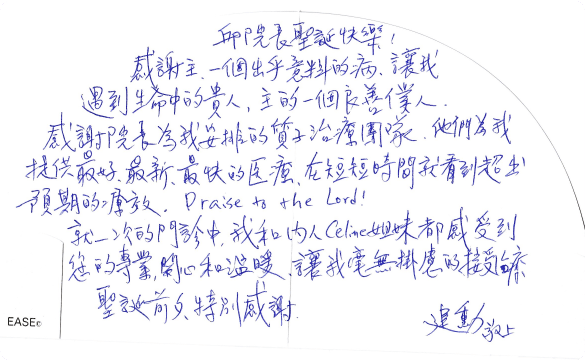 邱院長聖誕快樂！
感謝主、一個出乎意料的病、讓我
遇到生命中的貴人、主的一個良善僕人.
感謝院長為我安排的質子治療團隊、他們為我
提供最好、最新、最快的医療、在短短時間就看到超出
預期的療效、Praise to the Lord!
就一次的門診中、我和內人Celine姐妹都感受到
您的專業、關心和溫暖、讓我毫無掛慮的接受治療
聖誕前夕、特別感謝.
建勳 敬上
EASE